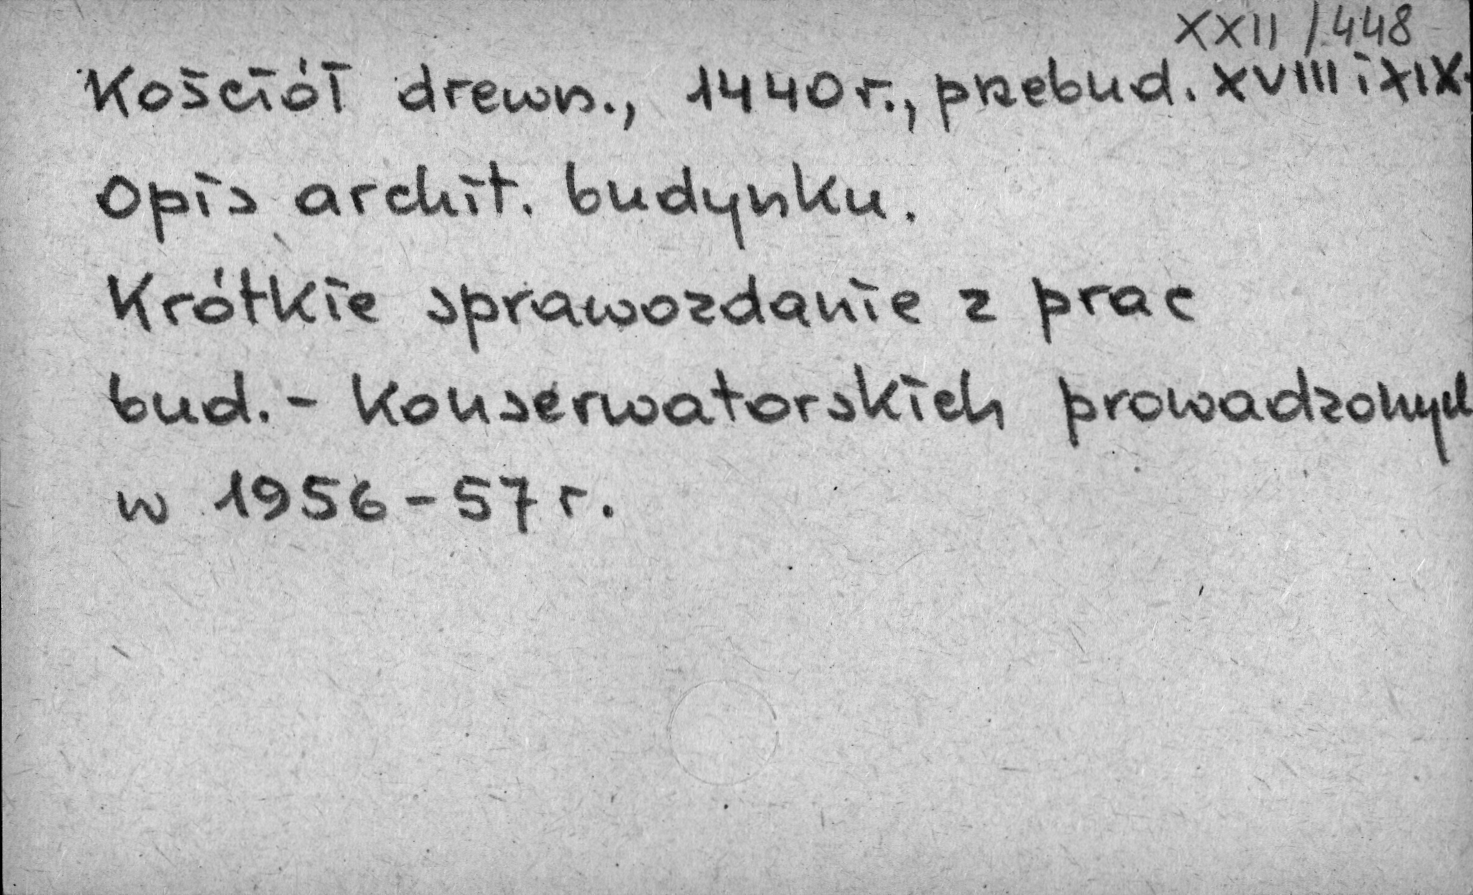 XXII/448
Kościół drewn., 1440 r., przebud. XVIII i XIX.
Opis archit. budynku.
Krótkie sprawozdanie z prac
bud.- konserwatorskich prowadzonych
w 1956-57 r.